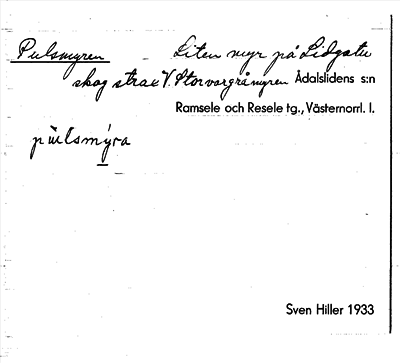 Pulsmyren Liten myr på Lidgatu
skog strax V. Storvargråmyren Ådalslidens s:n
Ramsele och Resele tg., Västernorrl. l.
pùlsmýra
Sven Hiller 1933